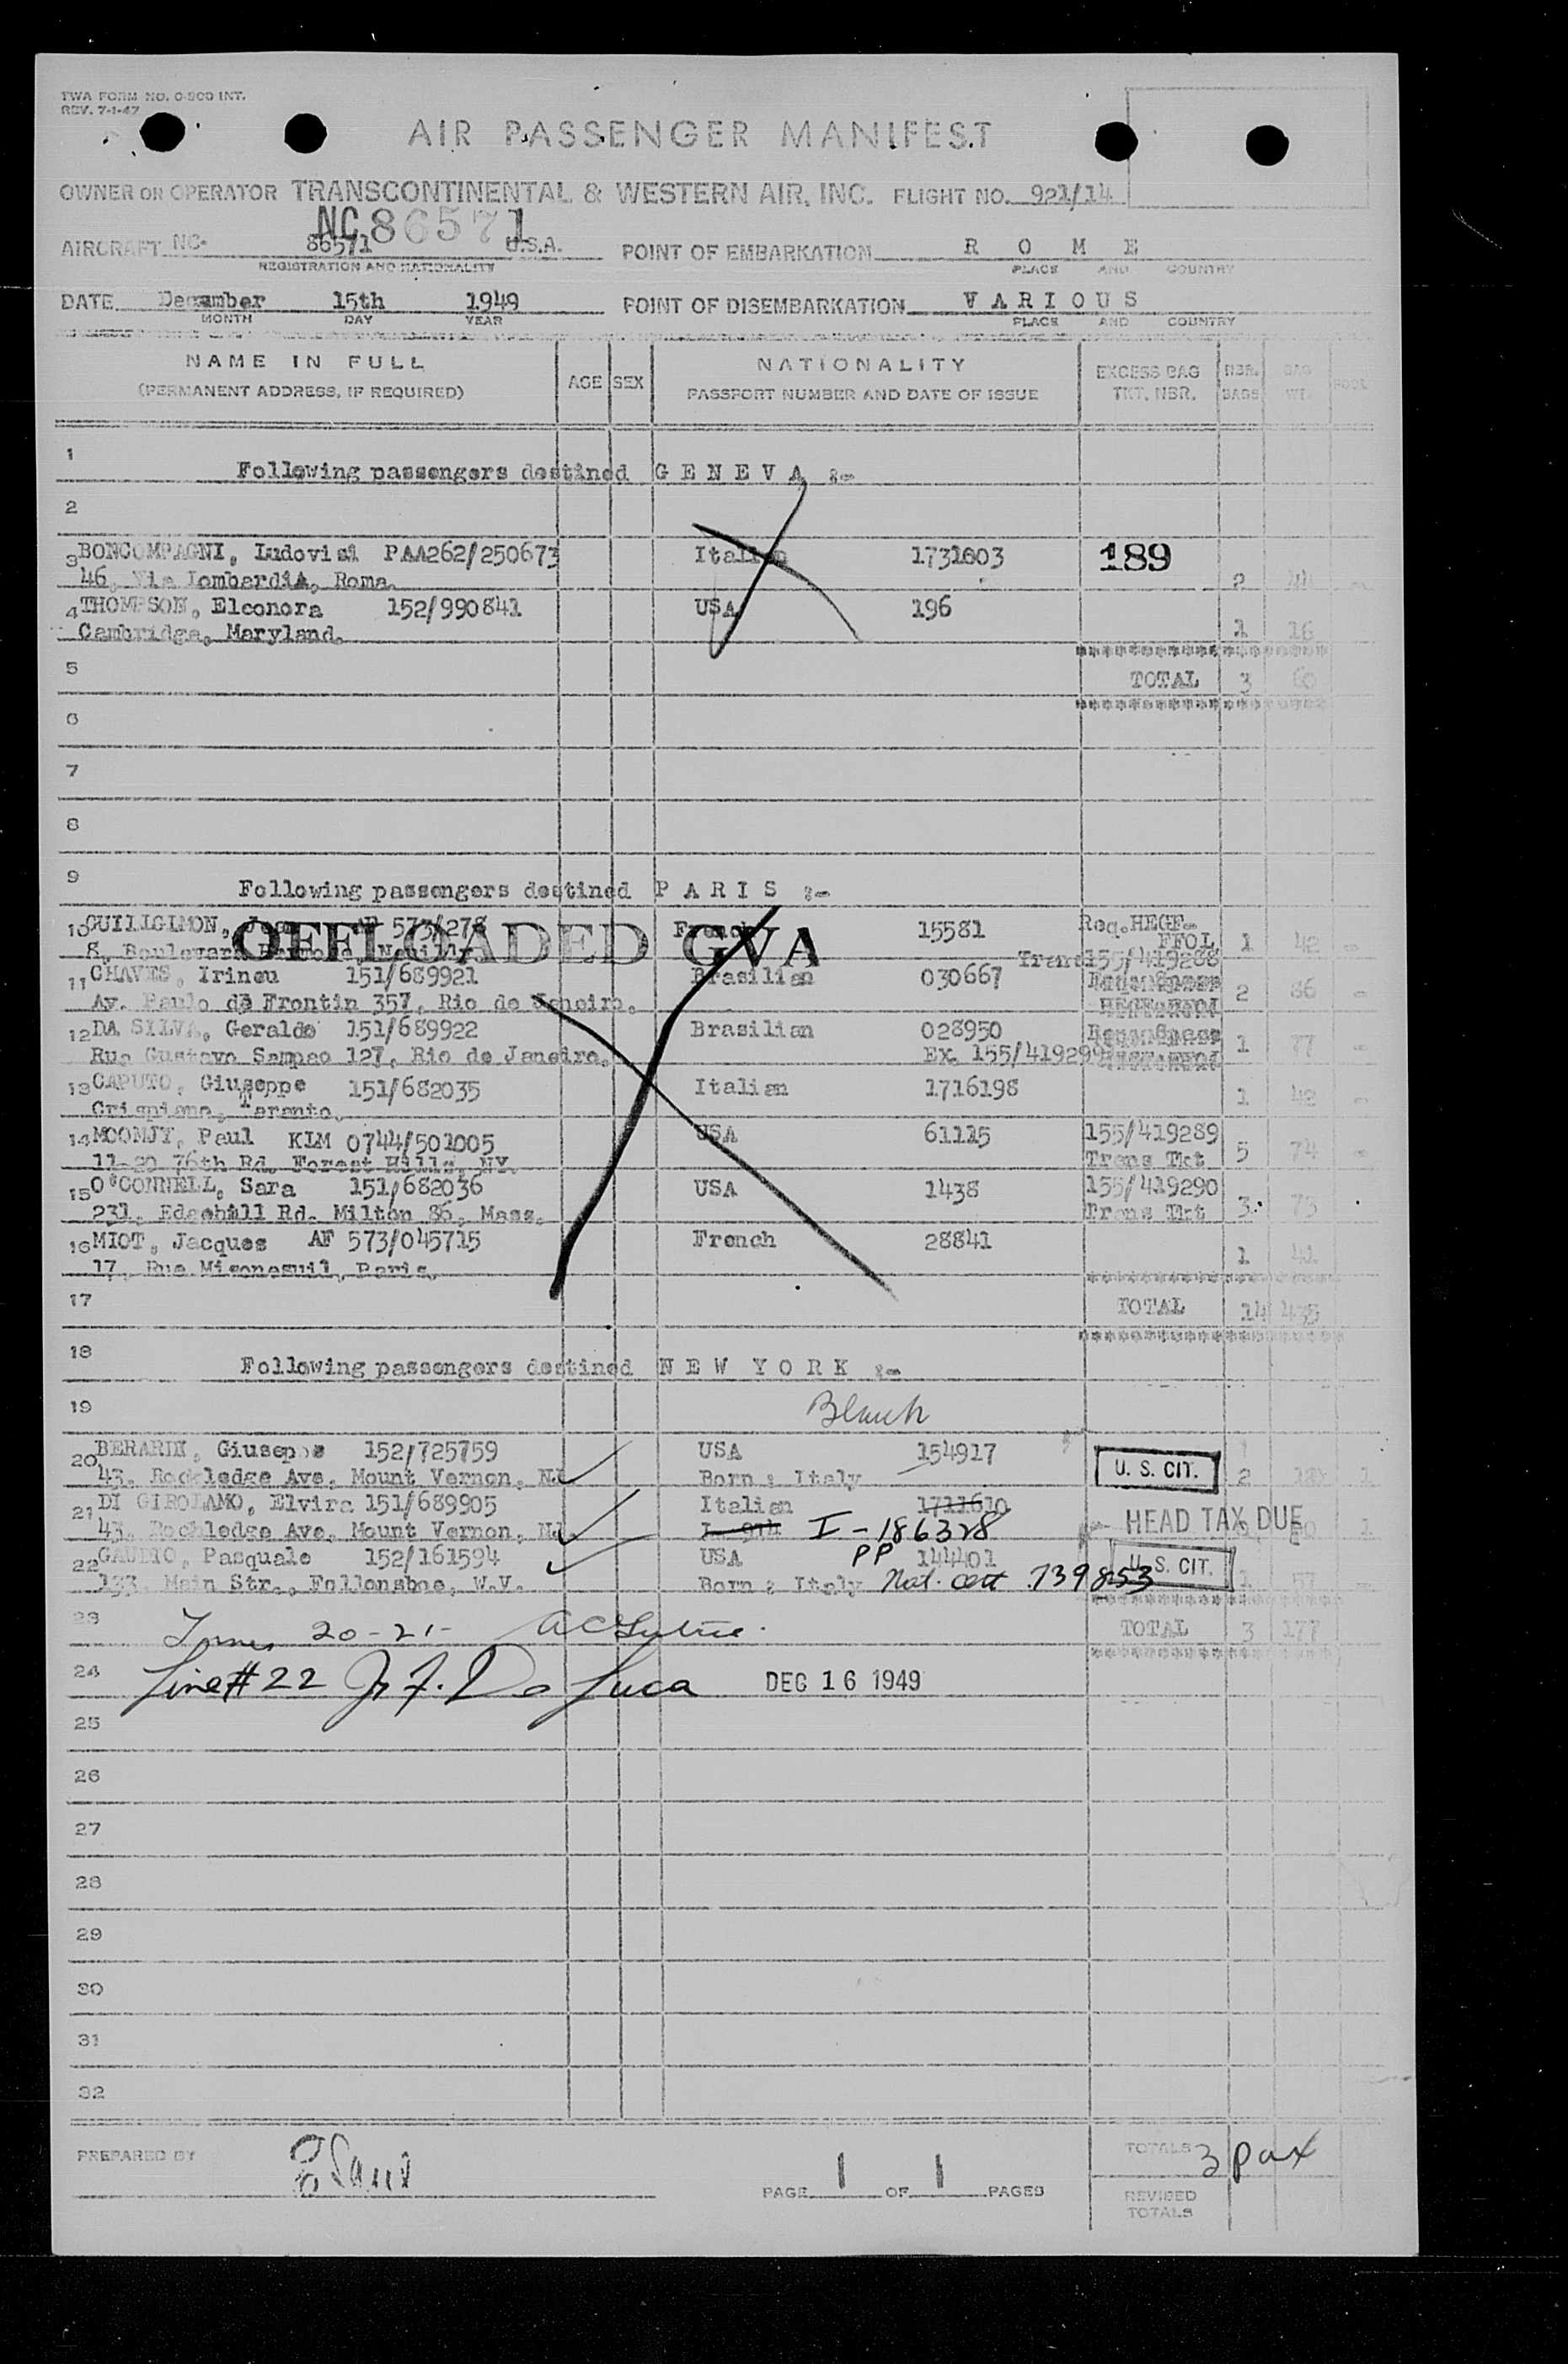 TWA FORM NO. O-900 INT.
REV. 7-1-47
AIR PASSENGER MANIFEST
OWNER OR OPERATOR TRANSCONTINENTAL & WESTERN AIR, INC. FLIGHT NO. 921/14
NC 86571
AIRCRAFT NC- 86571 U.S.A. POINT OF EMBARKATION R O M E
REGISTRATION AND NATIONALITY PLACE AND COUNTRY
DATE December 15th 1949 POINT OF DISEMBARKATION V A R I O U S
MONTH DAY YEAR PLACE AND COUNTRY
NAME IN FULL
(PERMANENT ADDRESS, IF REQUIRED) AGE SEX NATIONALITY
PASSPORT NUMBER AND DATE OF ISSUE
EXCESS BAG
TKT. NBR. NBR.
BAGS BAG
WT.
1 Following passengers destined G E N E V A :-
2
3 BONCOMPAGNI, Ludovisi PAA262/250673 Italian 1731803 189
46, Via Lombardia, Roma. 2 44 -
4 THOMPSON, Eleonora 152/990841 USA 196
Cambridge, Maryland. 1 16
5 TOTAL 3 60
6
7
8
9 Following passengers destined P A R I S :-
10 AF 573/278 French 15581 Req.HEGF- 1 42 -
8, Boulevard FFOL
OFFLOADED GVA
Trans 155/419288
11 CHAVES, Irineu 151/689921 Brasilian 030667 2 86 -
Av. Paulo de Frontin 357, Rio de Janeiro.
12 DA SILVA, Geraldo 151/689922 Brasilian 028950 1 77 -
Rue Gustavo Sampao 127, Rio de Janeiro. Ex. 155/419299
13 CAPUTO, Giuseppe 151/682035 Italian 1716198 1 42 -
Crispiano, Taranto.
14 MOOMJY, Paul KLM 0744/501005 USA 61115 155/419289 5 74 -
11-20 76th Rd. Forest Hills, NY. Trans Tkt
15 O'CONNELL, Sara 151/682036 USA 1438 155/419290 3 73
231, Edgehill Rd. Milton 86, Mass. Trans Tkt
16 MIOT, Jacques AF 573/045715 French 28841 1 41
17, Rue Paris.
17 TOTAL 14 435
18 Following passengers destined N E W Y O R K :-
19
20 Giuseppe 152/725759 USA 154917 U. S. CIT.
43, Rockledge Ave, Mount Vernon, NJ Born : Italy 2
21 DI GIROLAMO, Elvira 151/689905 Italian 1711610 HEAD TAX DUE
43, Rockledge Ave, Mount Vernon, NJ. I-186328
22 GAUDIO, Pasquale 152/161594 USA PP 144401 U. S. CIT.
133, Main Str., Follonsbee, W.V. Born : Italy Nat. Cert 739853 1 57 -
23 20-21- TOTAL 3 177
24 Line# 22 De Luca DEC 16 1949
25
26
27
28
29
30
31
32
PREPARED BY TOTALS 3 pax
PAGE 1 OF 1 PAGES
REVISED
TOTALS